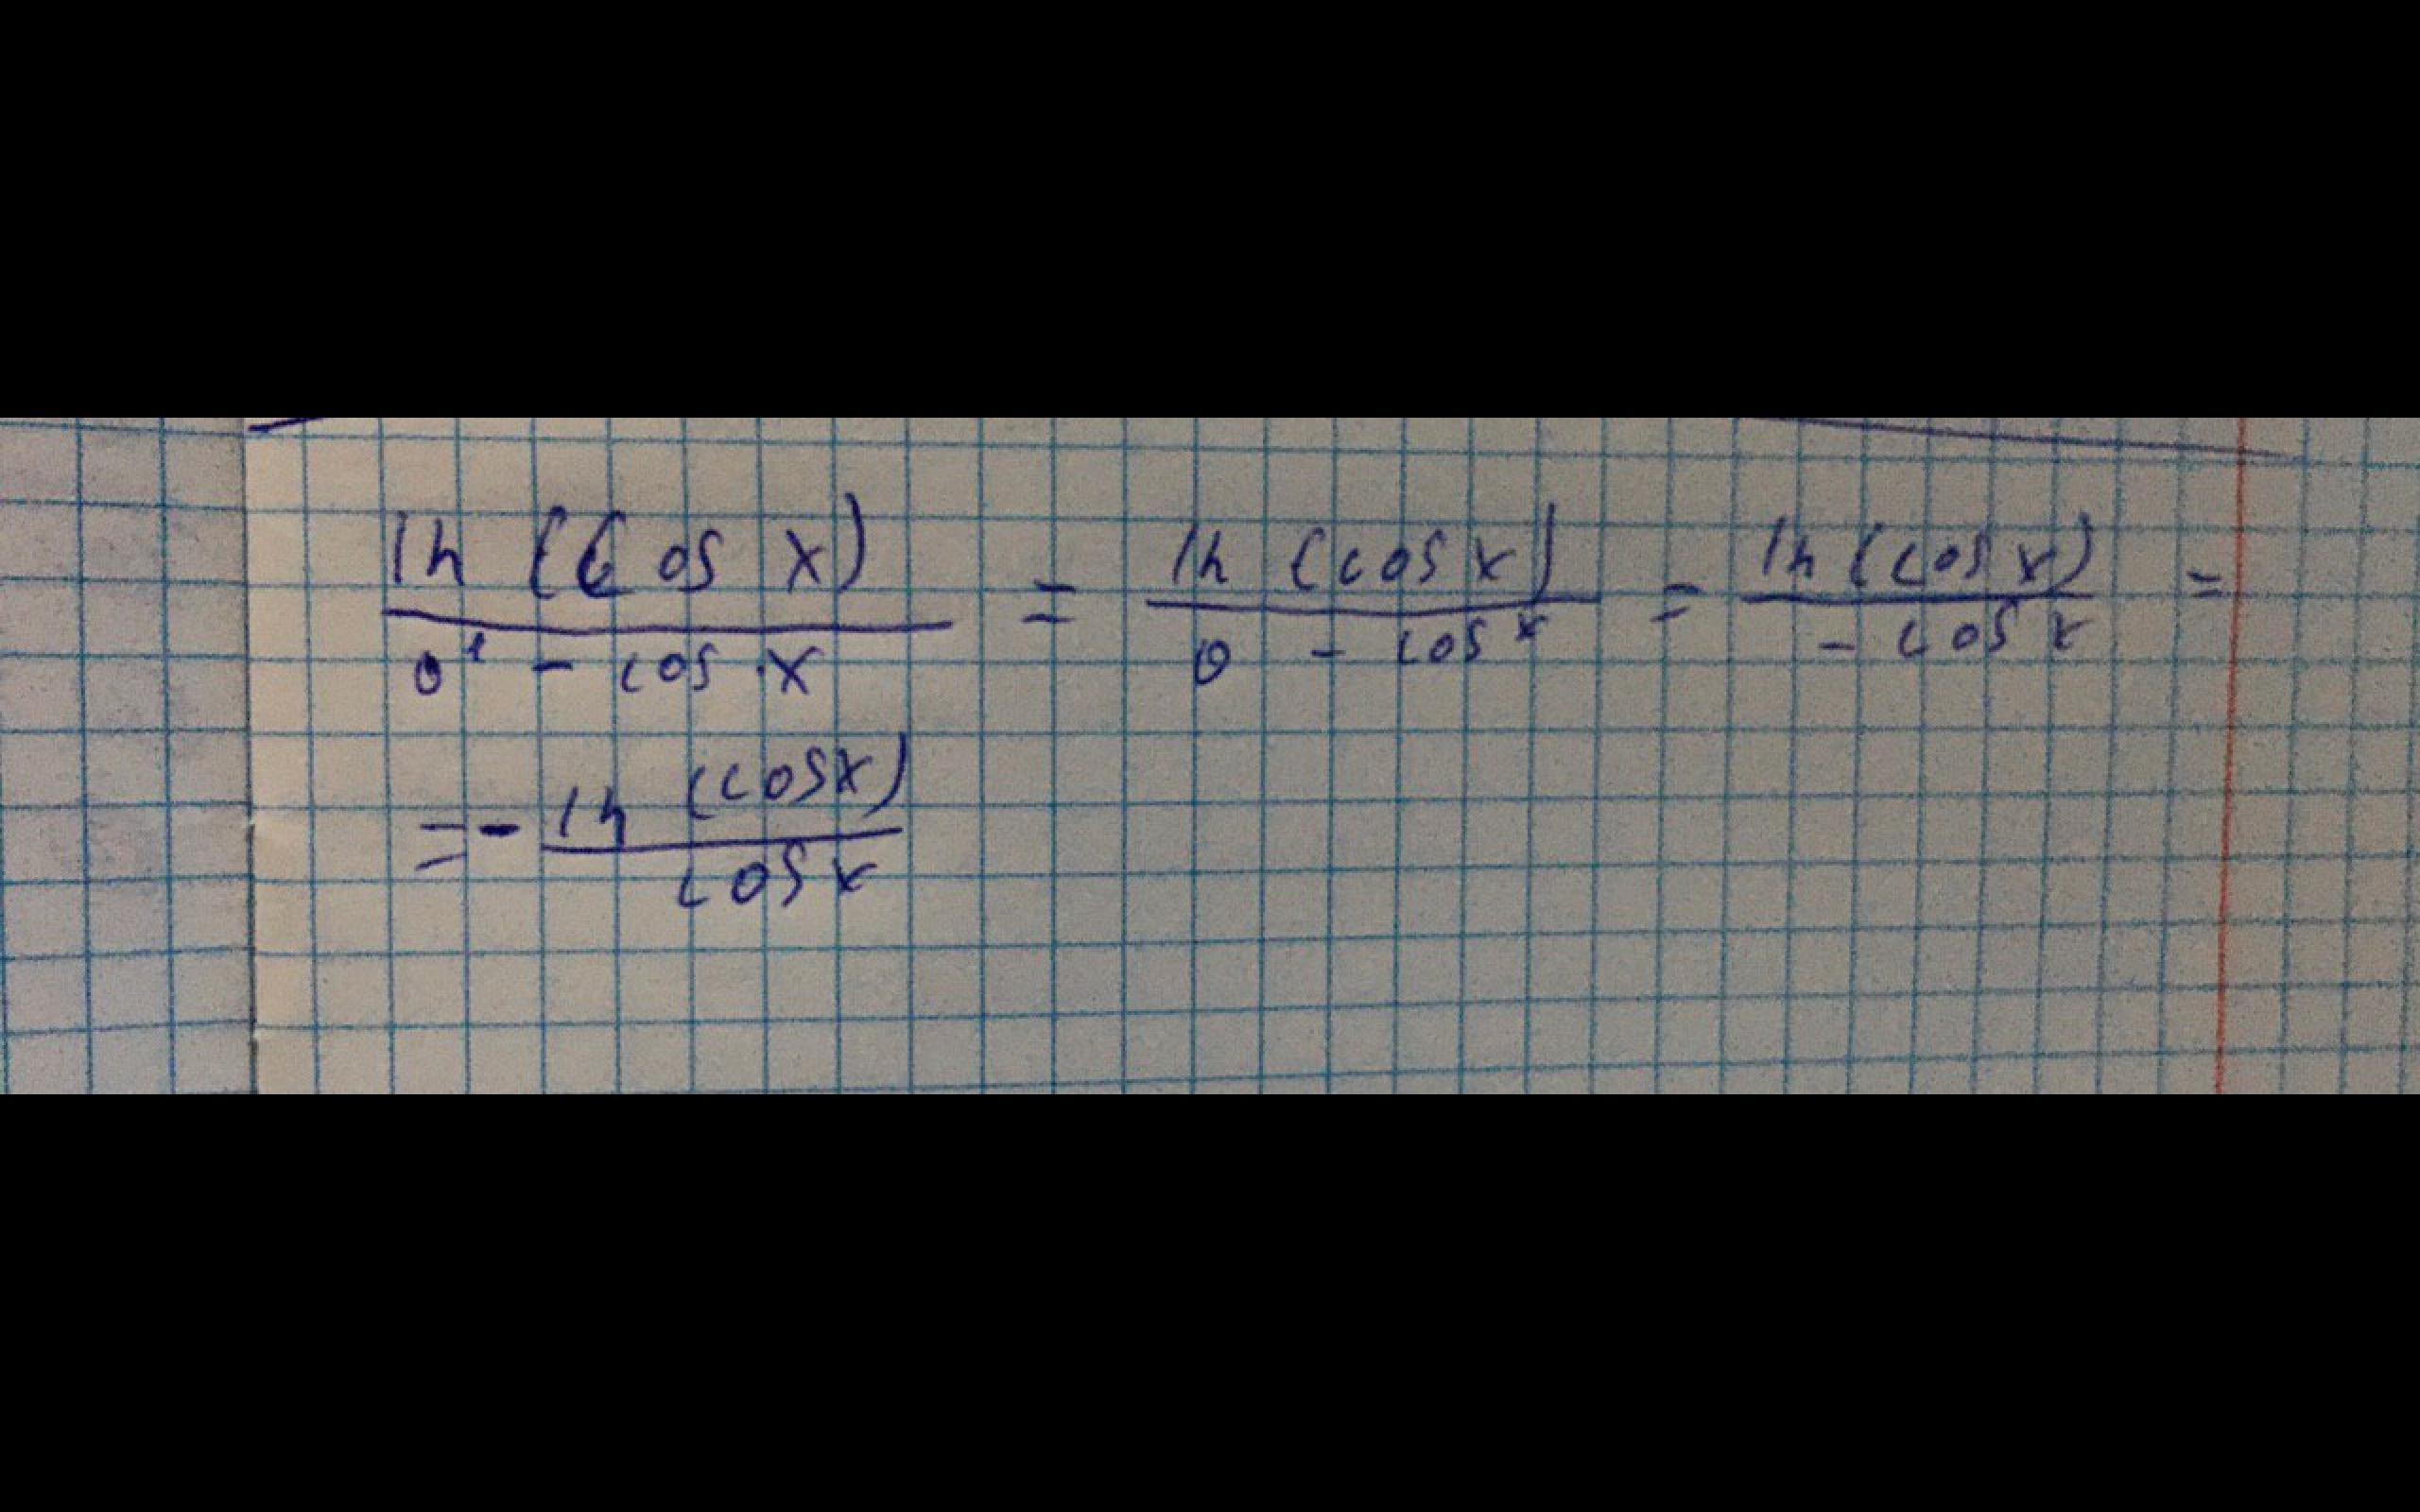 ln (cos x) / 0¹ - cos x = ln (cos x) / 0 - cos x = ln (cos x) / - cos x =
= - ln (cos x) / cos x